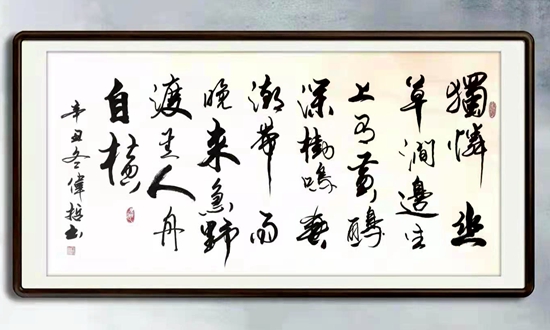 獨憐幽
草澗邊生
上有黃鸝
深樹鳴春
潮帶雨
晚來急野
渡無人舟
自橫
辛丑冬偉哲書